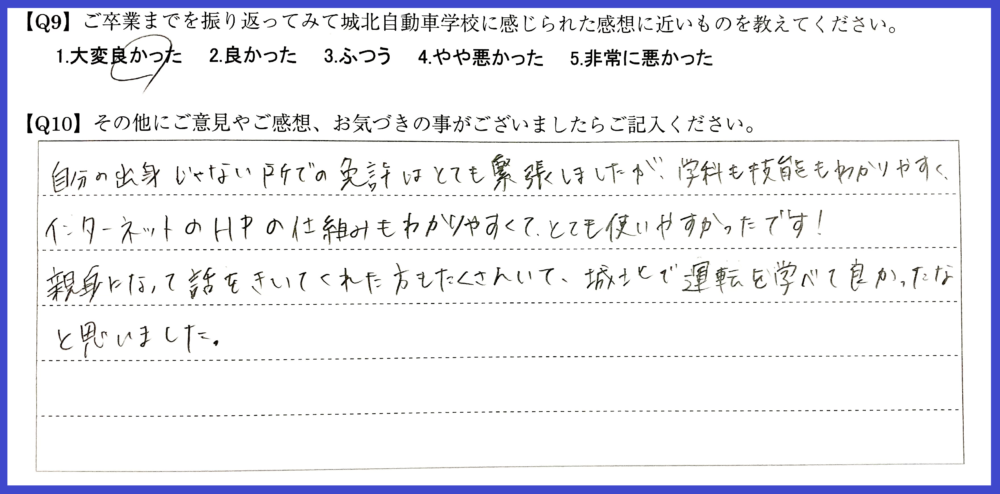 【Q9】ご卒業までを振り返ってみて城北自動車学校に感じられた感想に近いものを教えてください。
1.大変良かった 2.良かった 3.ふつう 4.やや悪かった 5.非常に悪かった
【Q10】その他にご意見やご感想、お気づきの事がございましたらご記入ください。
自分の出身じゃない所での免許はとても緊張しましたが、学科も技能もわかりやすく、
インターネットのHPの仕組みもわかりやすくて、とても使いやすかったです！
親身になって話をきいてくれた方もたくさんいて、城北で運転を学べて良かったな
と思いました。